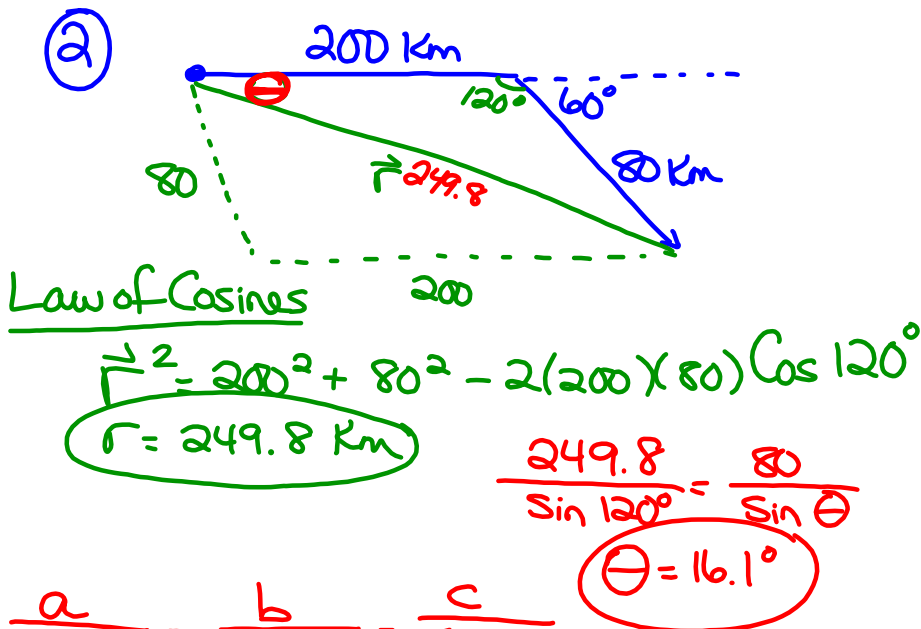 2
200 Km
θ
120°
60°
80
r⃗ 249.8
80 Km
200
Law of Cosines
r⃗² = 200² + 80² - 2(200)(80) Cos 120°
r = 249.8 Km
249.8 / Sin 120° = 80 / Sin θ
θ = 16.1°
a b c